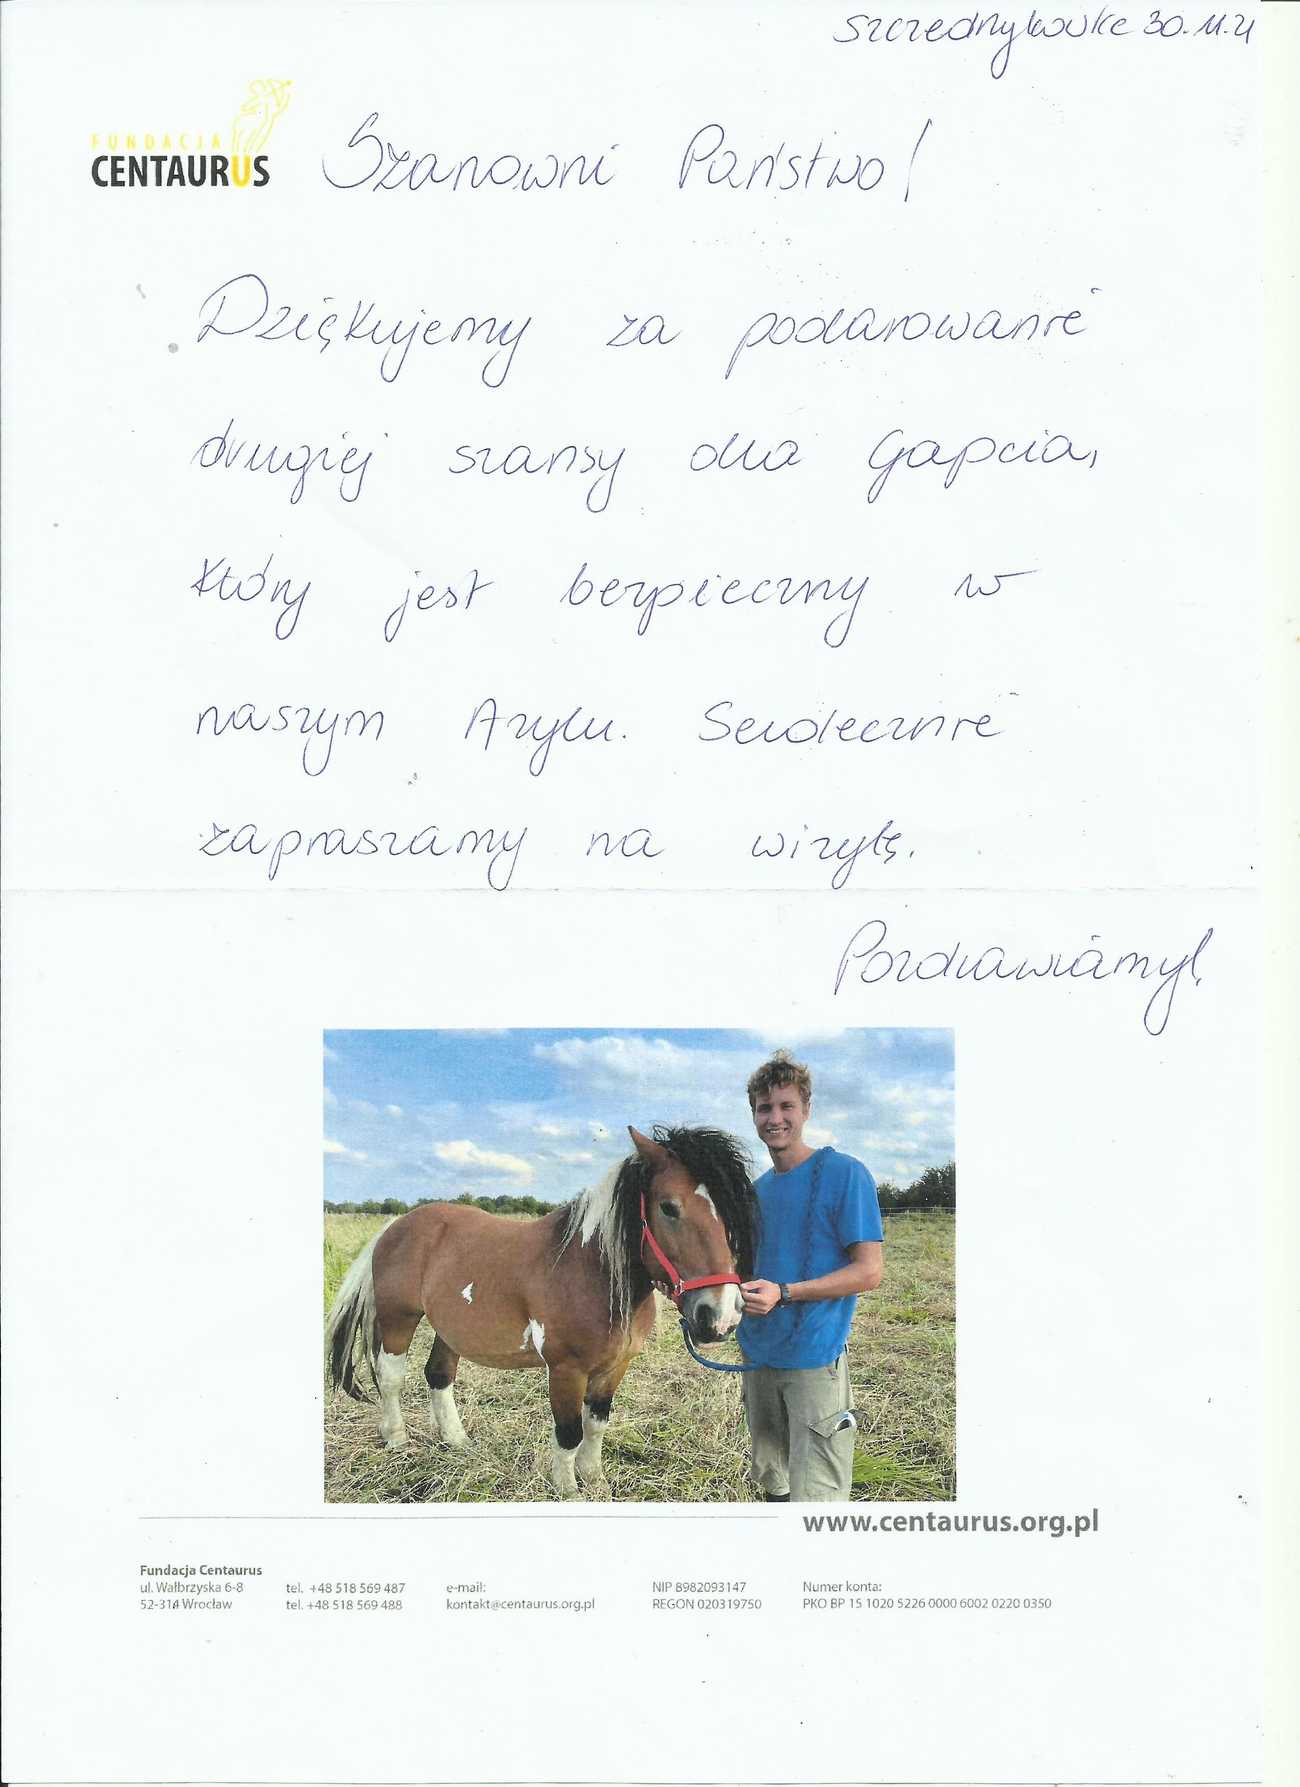 Szczedrzykowice 30.11.21
FUNDACJA
CENTAURUS
Szanowni Państwo!
Dziękujemy za podarowanie
drugiej szansy dla Gapcia,
który jest bezpieczny w
naszym Azylu. Serdecznie
zapraszamy na wizytę.
Pozdrawiamy!
www.centaurus.org.pl
Fundacja Centaurus
ul. Wałbrzyska 6-8 tel. +48 518 569 487 e-mail: NIP 8982093147 Numer konta:
52-314 Wrocław tel. +48 518 569 488 kontakt@centaurus.org.pl REGON 020319750 PKO BP 15 1020 5226 0000 6002 0220 0350